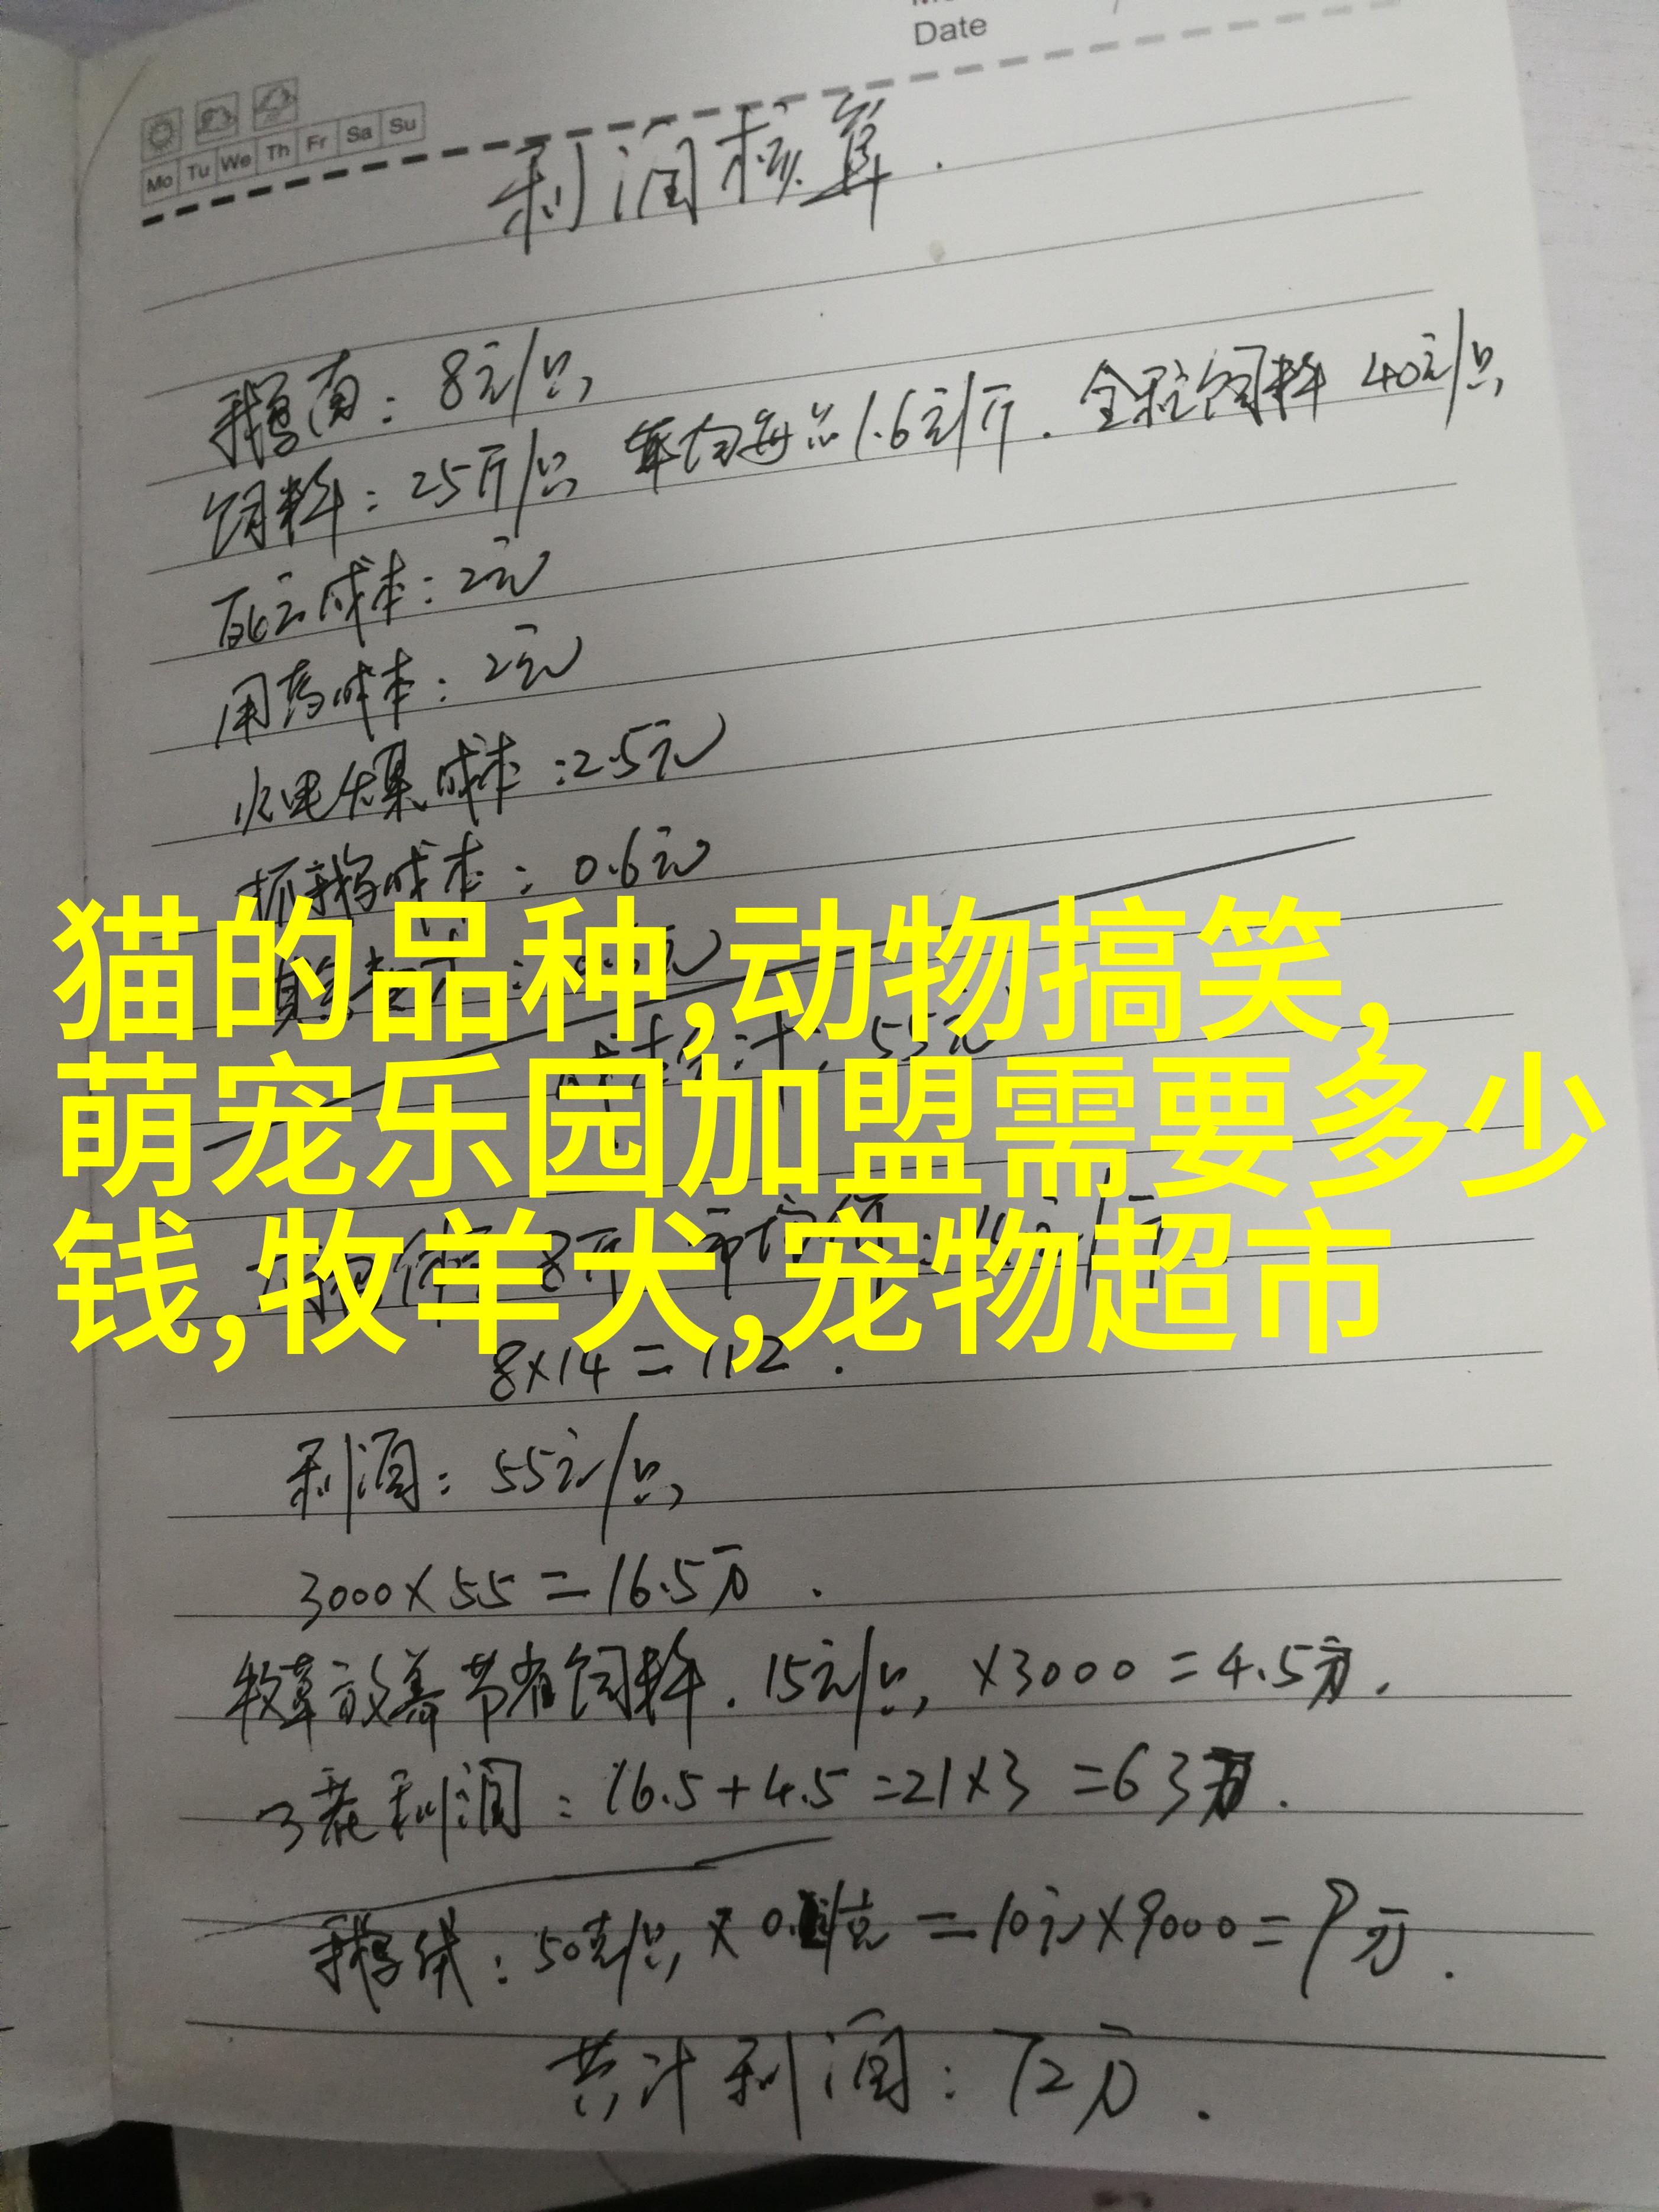 Date
Mo Tu We Th Fr Sa Su
利润核算.
鹅苗: 8元/只,
饲料: 25斤/只, 年均每斤1.6元/斤. 全程饲料 40元/只,
死亡成本: 2元
用药成本: 2元
水电煤成本: 2.5元
抓鹅成本: 0.6元
猫的品种,动物搞笑,
萌宠乐园加盟需要多少
钱,牧羊犬,宠物超市
8×14=112.
利润: 55元/只,
3000×55=16.5万.
牧草放养节省饲料. 15元/只, ×3000=4.5万.
3茬利润: 16.5+4.5=21×3=63万.
鹅绒: 50克/只, × /克=10元×9000=9万.
共计利润: 72万.